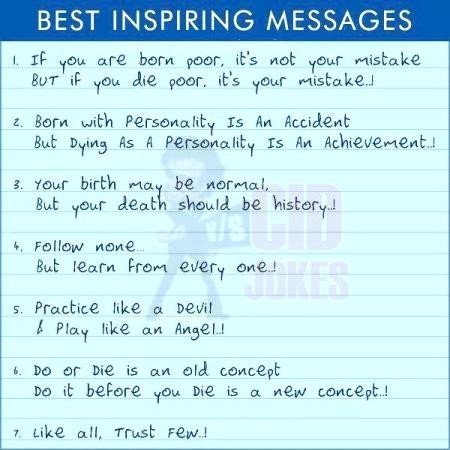 BEST INSPIRING MESSAGES
1. If you are born poor, it's not your mistake
BUT if you die poor, it's your mistake..!
2. Born with Personality Is An Accident
But Dying As A Personality Is An Achievement..!
3. Your birth may be normal,
But your death should be history..!
4. Follow none...
But learn from every one..!
V/S CID
JOKES
5. Practice like a Devil
& Play like an Angel..!
6. Do or Die is an old concept
Do it before you Die is a new concept..!
7. Like all, Trust Few..!